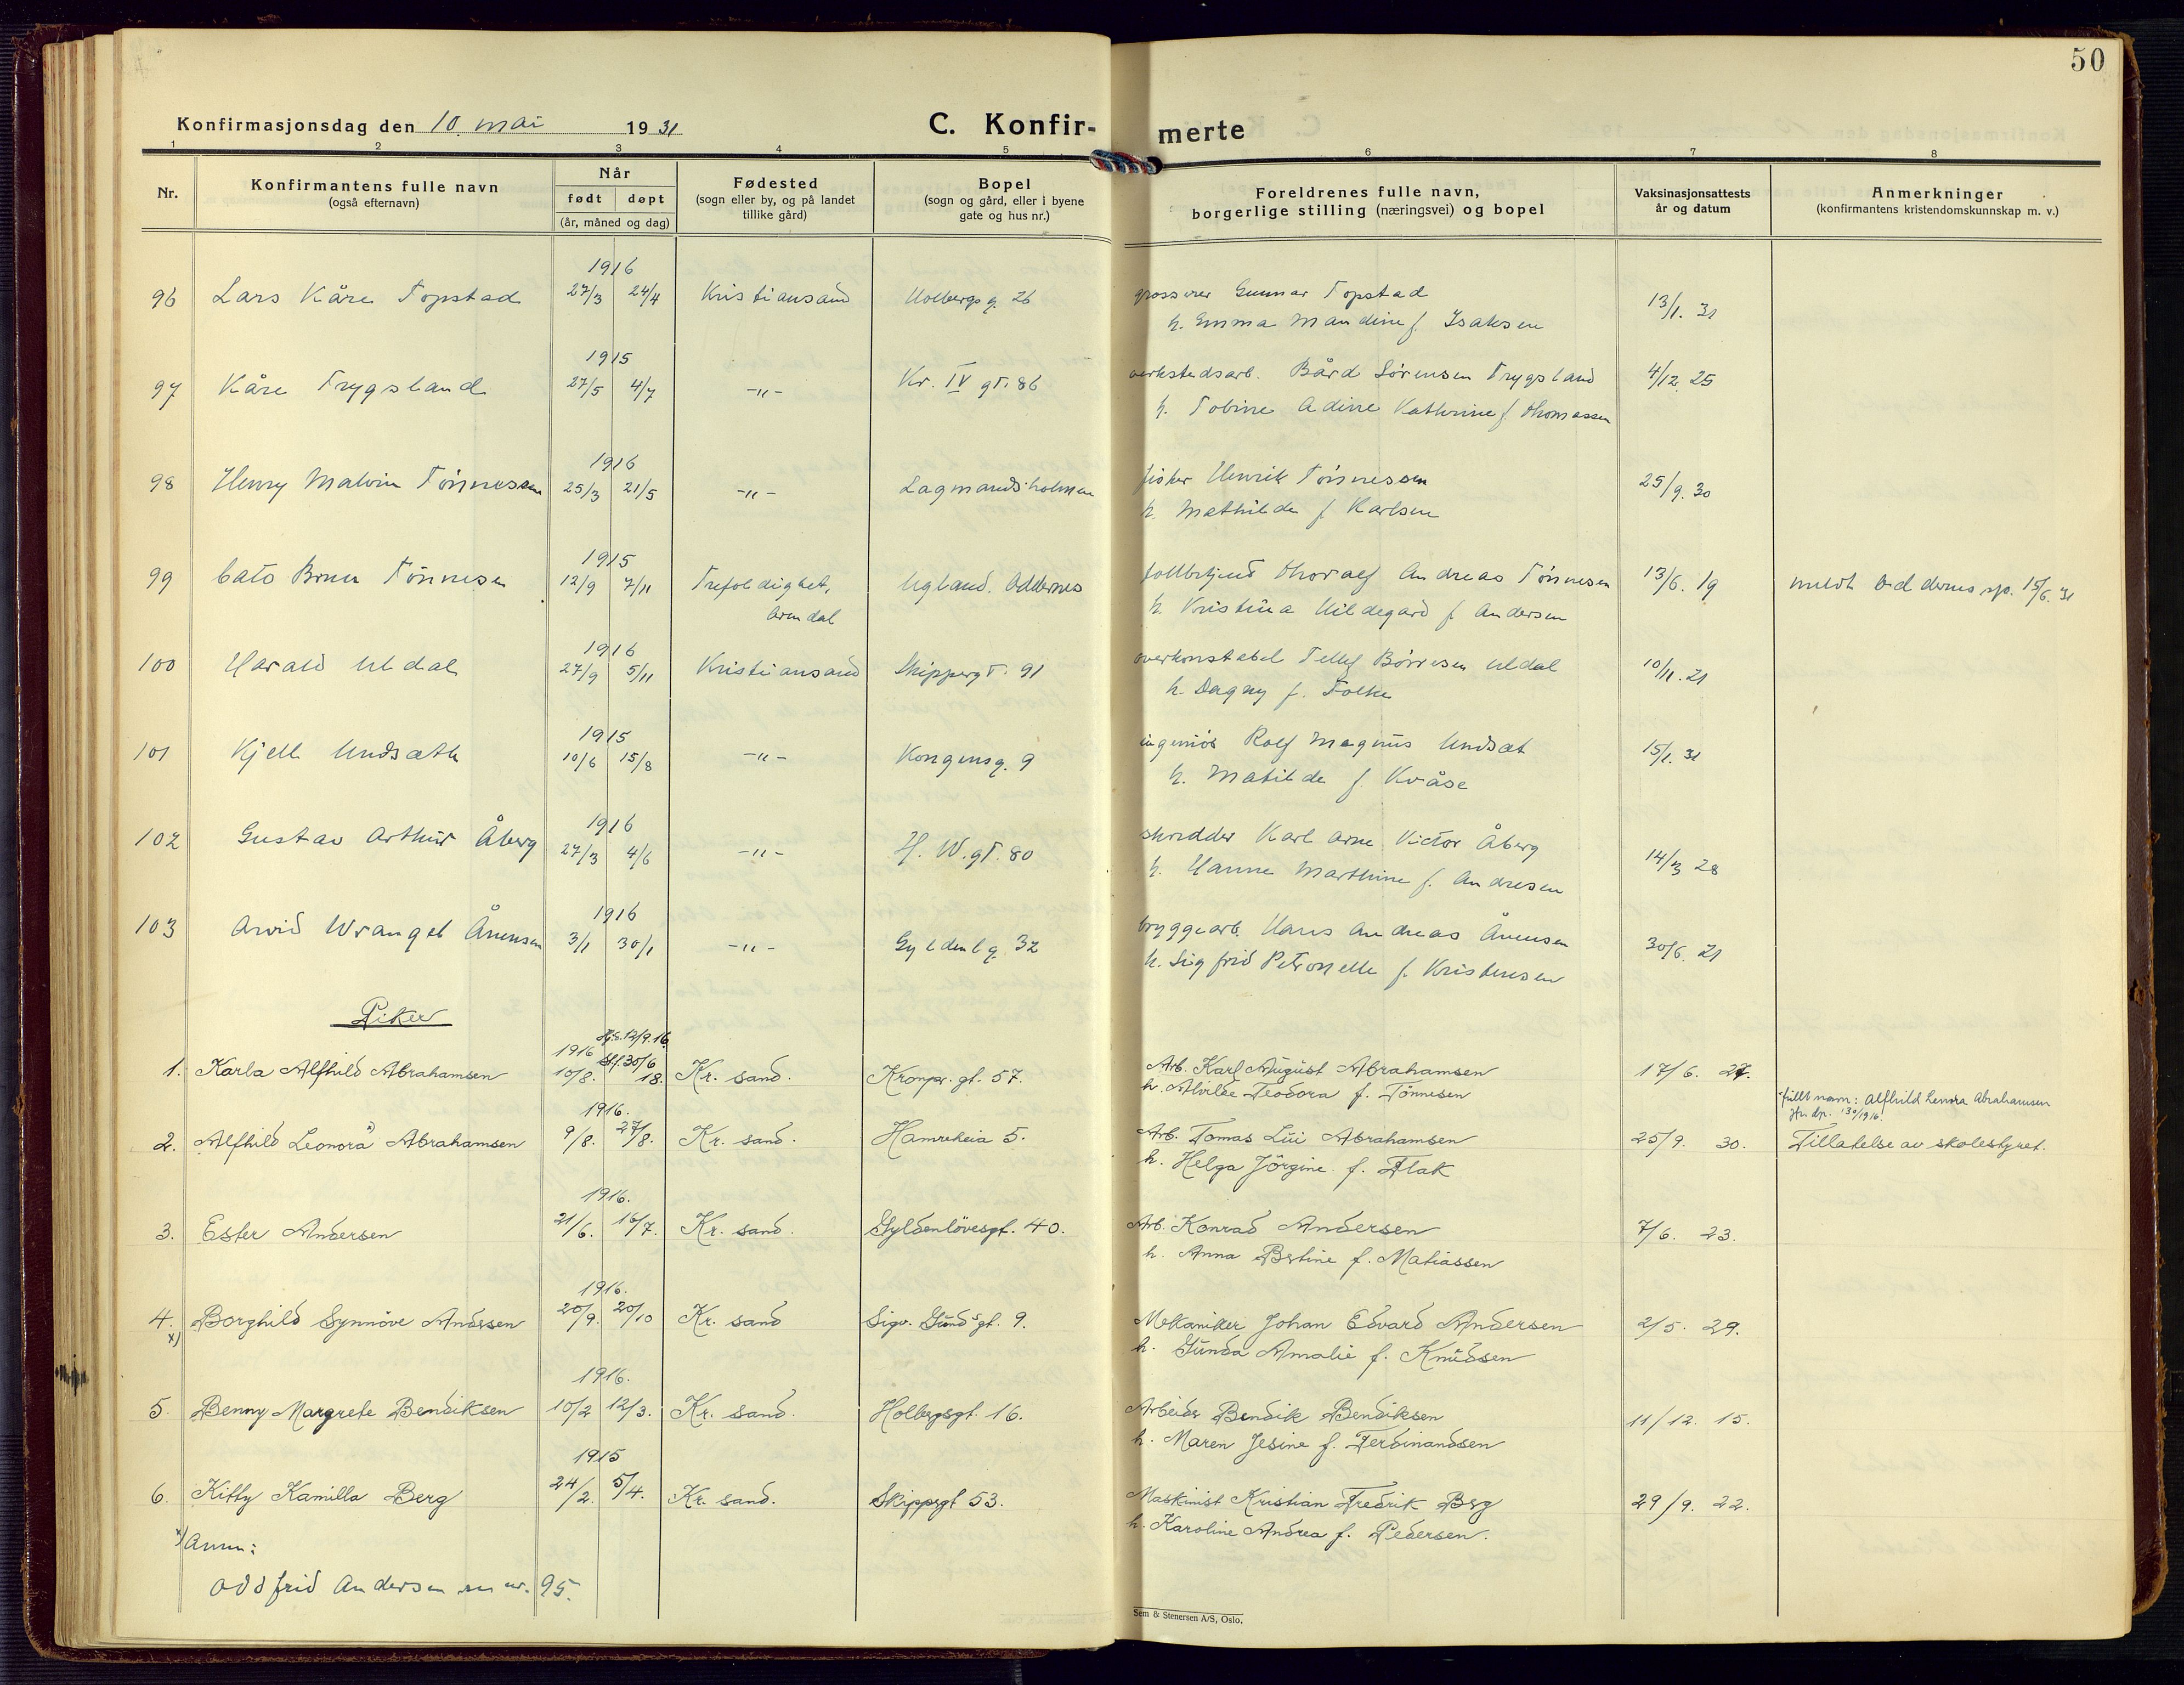 50
Konfirmasjonsdag den 10. mai 1931
C. Konfir-
merte
1 2 3 4 5 6 7 8
Nr.
Konfirmantens fulle navn
(også efternavn)
Når
født døpt
(år, måned og dag)
Fødested
(sogn eller by, og på landet
tillike gård)
Bopel
(sogn og gård, eller i byene
gate og hus nr.)
Foreldrenes fulle navn,
borgerlige stilling (næringsvei) og bopel
Vaksinasjonsattests
år og datum
Anmerkninger
(konfirmantens kristendomskunnskap m. v.)
1916
96 Lars Kåre Topstad 27/3 24/4 Kristiansand Holbergs g. 26 grosserer Gunnar Topstad 13/1. 31
h. Emma Mandine f. Isaksen
1915
97 Kåre Trygsland 27/5 4/7 -"- Kr. IV gt. 86 verkstedsarb. Bård Sørensen Trygsland 4/12 25
h. Tobine Adine Kathrine f. Thomassen
1916
98 Henry Malvin Tønnessen 25/3 21/5 -"- Lagmandsholmen fisker Henrik Tønnessen 25/9. 30
h. Mathilde f Karlsen
1915
99 Cato Brun Tønnesen 12/9 7/11 Trefoldighet, Ugland. Oddernes tollbetjent Thoralf Andreas Tønnesen 13/6. 19 meldt Oddernes sp. 15/6. 31
Arendal
h. Kristina Hildegard f Andersen
1916
100 Harald Uldal 27/9 5/11 Kristiansand Skippergt. 91 overkonstabel Tellef Børresen Uldal 10/11. 21
h. Dagny f. Folke
1915
101 Kjell Undsæth 10/6 15/8 -"- Kongensg. 9 ingeniør Rolf Magnus Undsæt 15/1. 31
h. Matilde f. Kvåse
1916
102 Gustav Arthur Åberg 27/3 4/6 -"- H. W. gt. 80 skredder Karl Arne Victor Åberg 14/3 28
h. Hanne Marthine f. Andresen
1916
103 Arvid Wrangel Ånensen 3/1 30/1 -"- Gyldenl g. 32 bryggearb. Hans Andreas Ånensen 30/6. 21
h. Sigfrid Petronelle f. Kristensen
Piker
1916 Hj. d. 12/9. 16.
1. Karla Alfhild Abrahamsen 10/8. Stf. 30/6 18. Kr. sand. Kronpr. gt. 57. Arb. Karl August Abrahamsen 17/6. 27.
h. Alvilde Teodora f. Tönnesen
x fullt navn: Alfhild Lenora Abrahamsen
1916.
2. Alfhild Leonora x) Abrahamsen 9/8. 27/8. Kr. sand. Hamreheia 5. Arb. Tomas Lui Abrahamsen 25/9. 30. Tillatelse av skolestyret.
h. Helga Jörgine f. Flak
1916.
3. Ester Andersen 21/6. 16/7. Kr. sand. Gyldenlövesgt. 40. Arb. Konrad Andersen 7/6. 23.
h. Anna Bertine f. Matiassen
1916.
4. x) Borghild Synnöve Andersen 20/9. 20/10 Kr. sand Sigv. Gunds gt. 9. Mekaniker Johan Edvard Andersen 2/5. 29.
h. Gunda Amalie f. Knudsen
1916.
5. Benny Margrete Bendiksen 10/2 12/3. Kr. sand. Holbergsgt. 16. Arbeider Bendik Bendiksen 11/12. 15.
h. Maren Jesine f. Ferdinandsen
1915
6. Kitty Kamilla Berg 24/2. 5/4. Kr. sand. Skippergt 53. Maskinist Kristian Fredrik Berg 29/9. 22.
h. Karoline Andrea f. Pedersen.
x) Anm:
Oddfrid Andersen se nr. 95.
Sem & Stenersen A/S, Oslo.